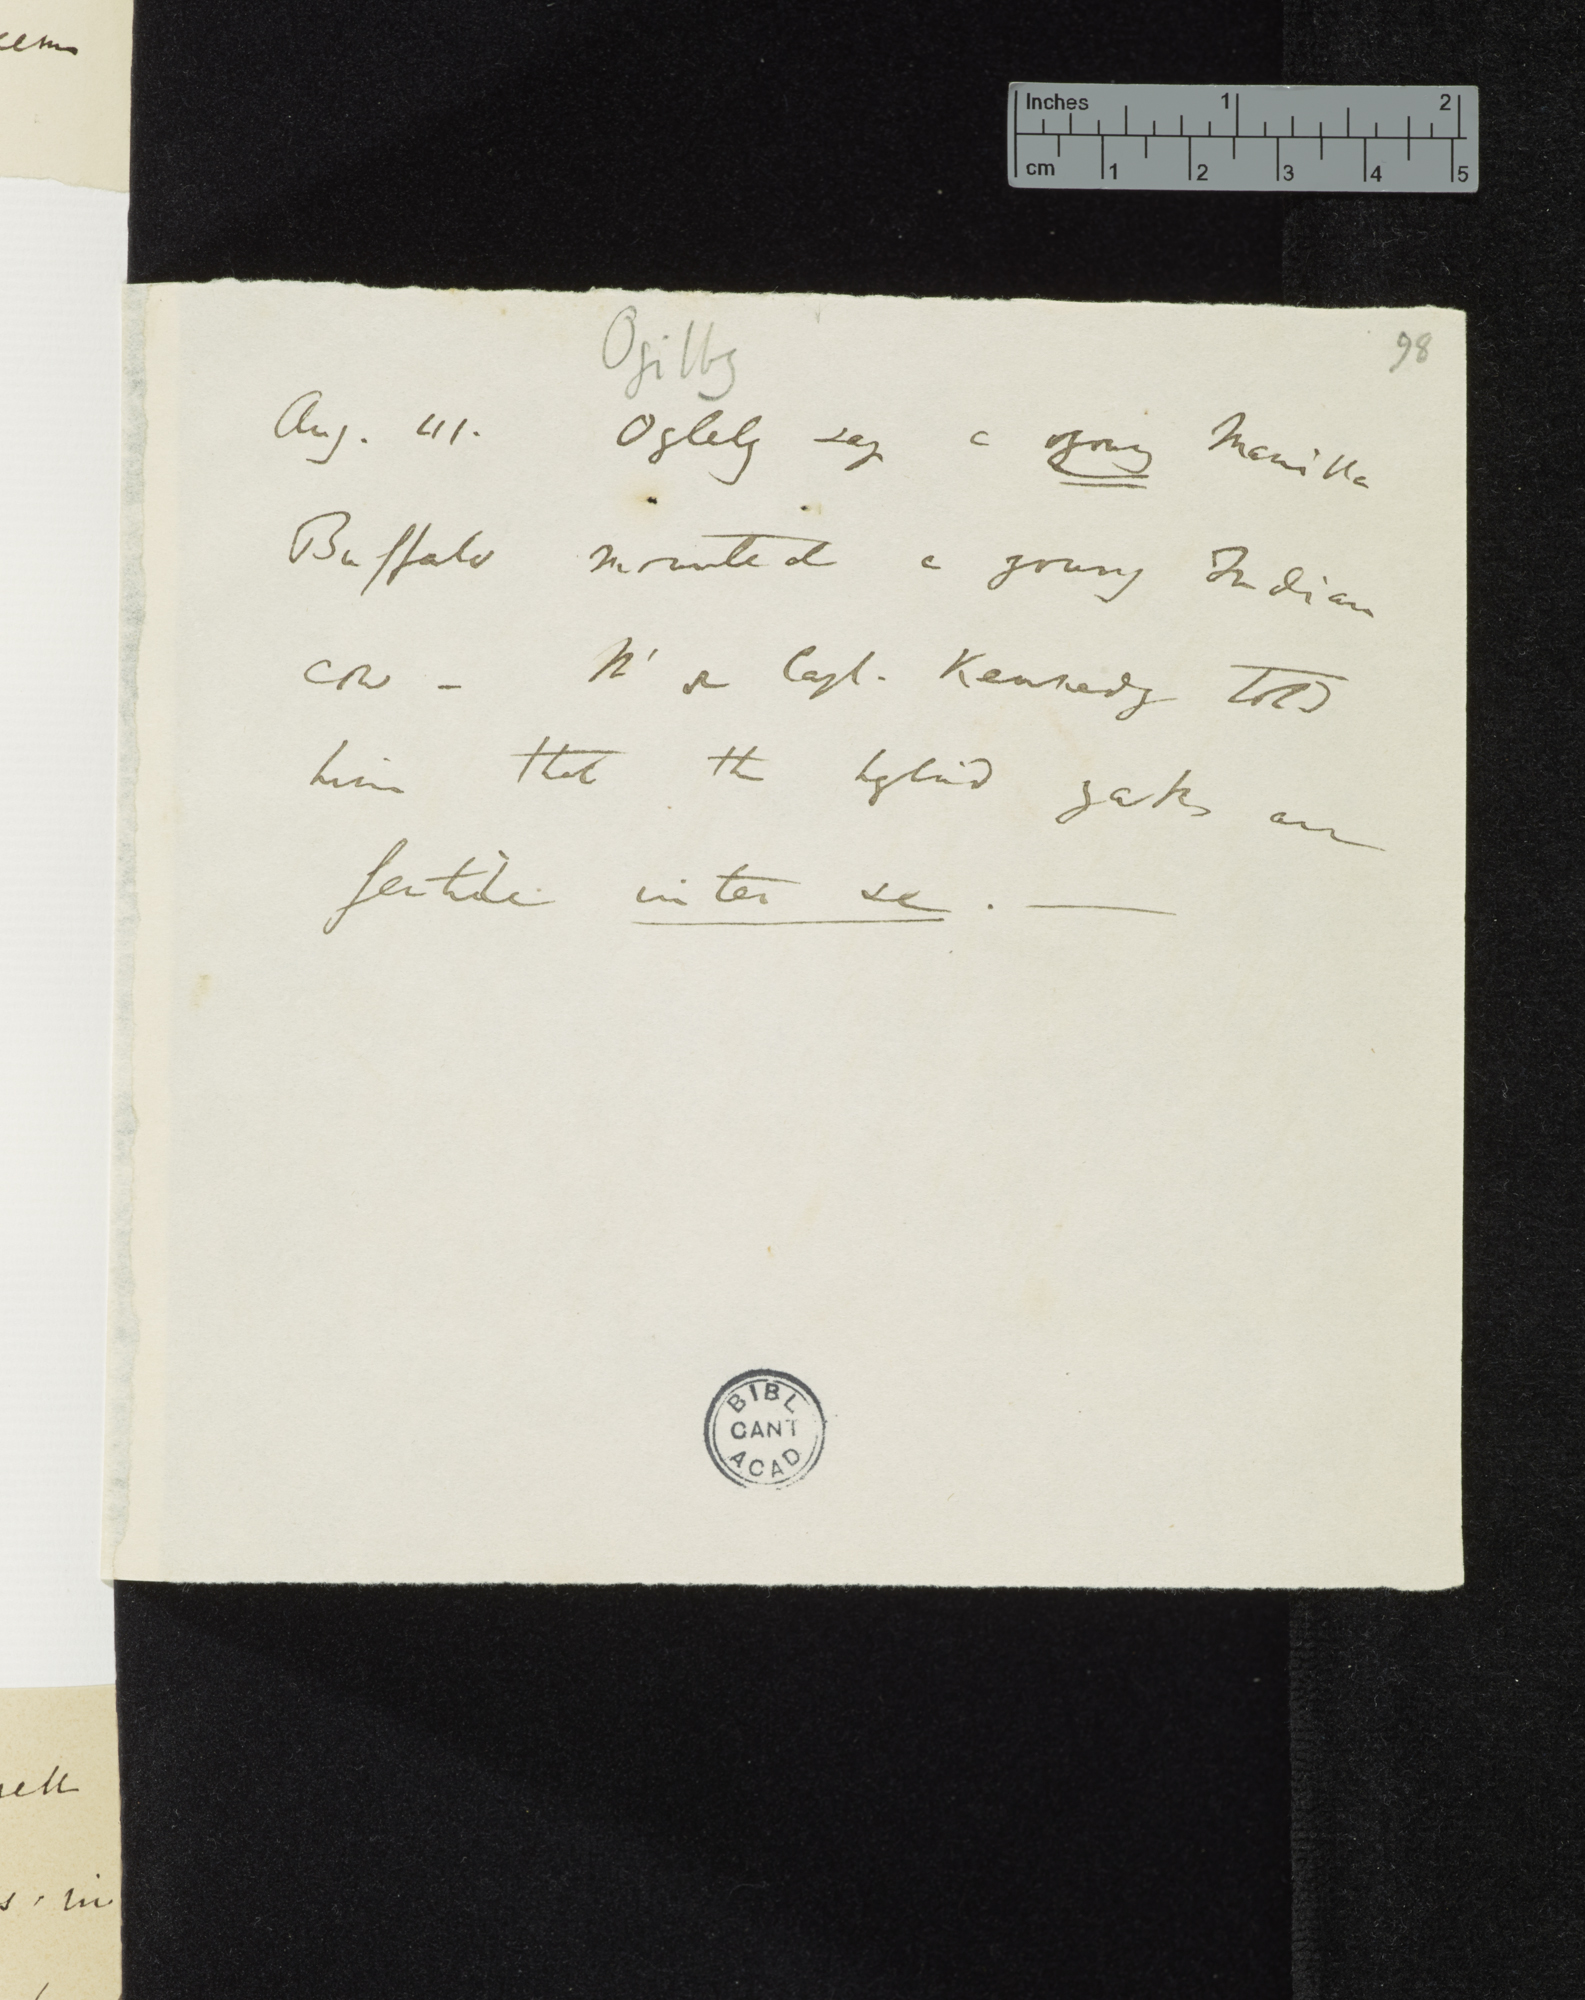 Inches 1 2
cm 1 2 3 4 5
Ogilby 98
Aug. 41. Oglely say a young Manilla
Buffalo mounted a young Indian
cow – Capt. Kennedy told
him that the hybrid yaks are
fertile inter se. —
BIBL
CANT
ACAD